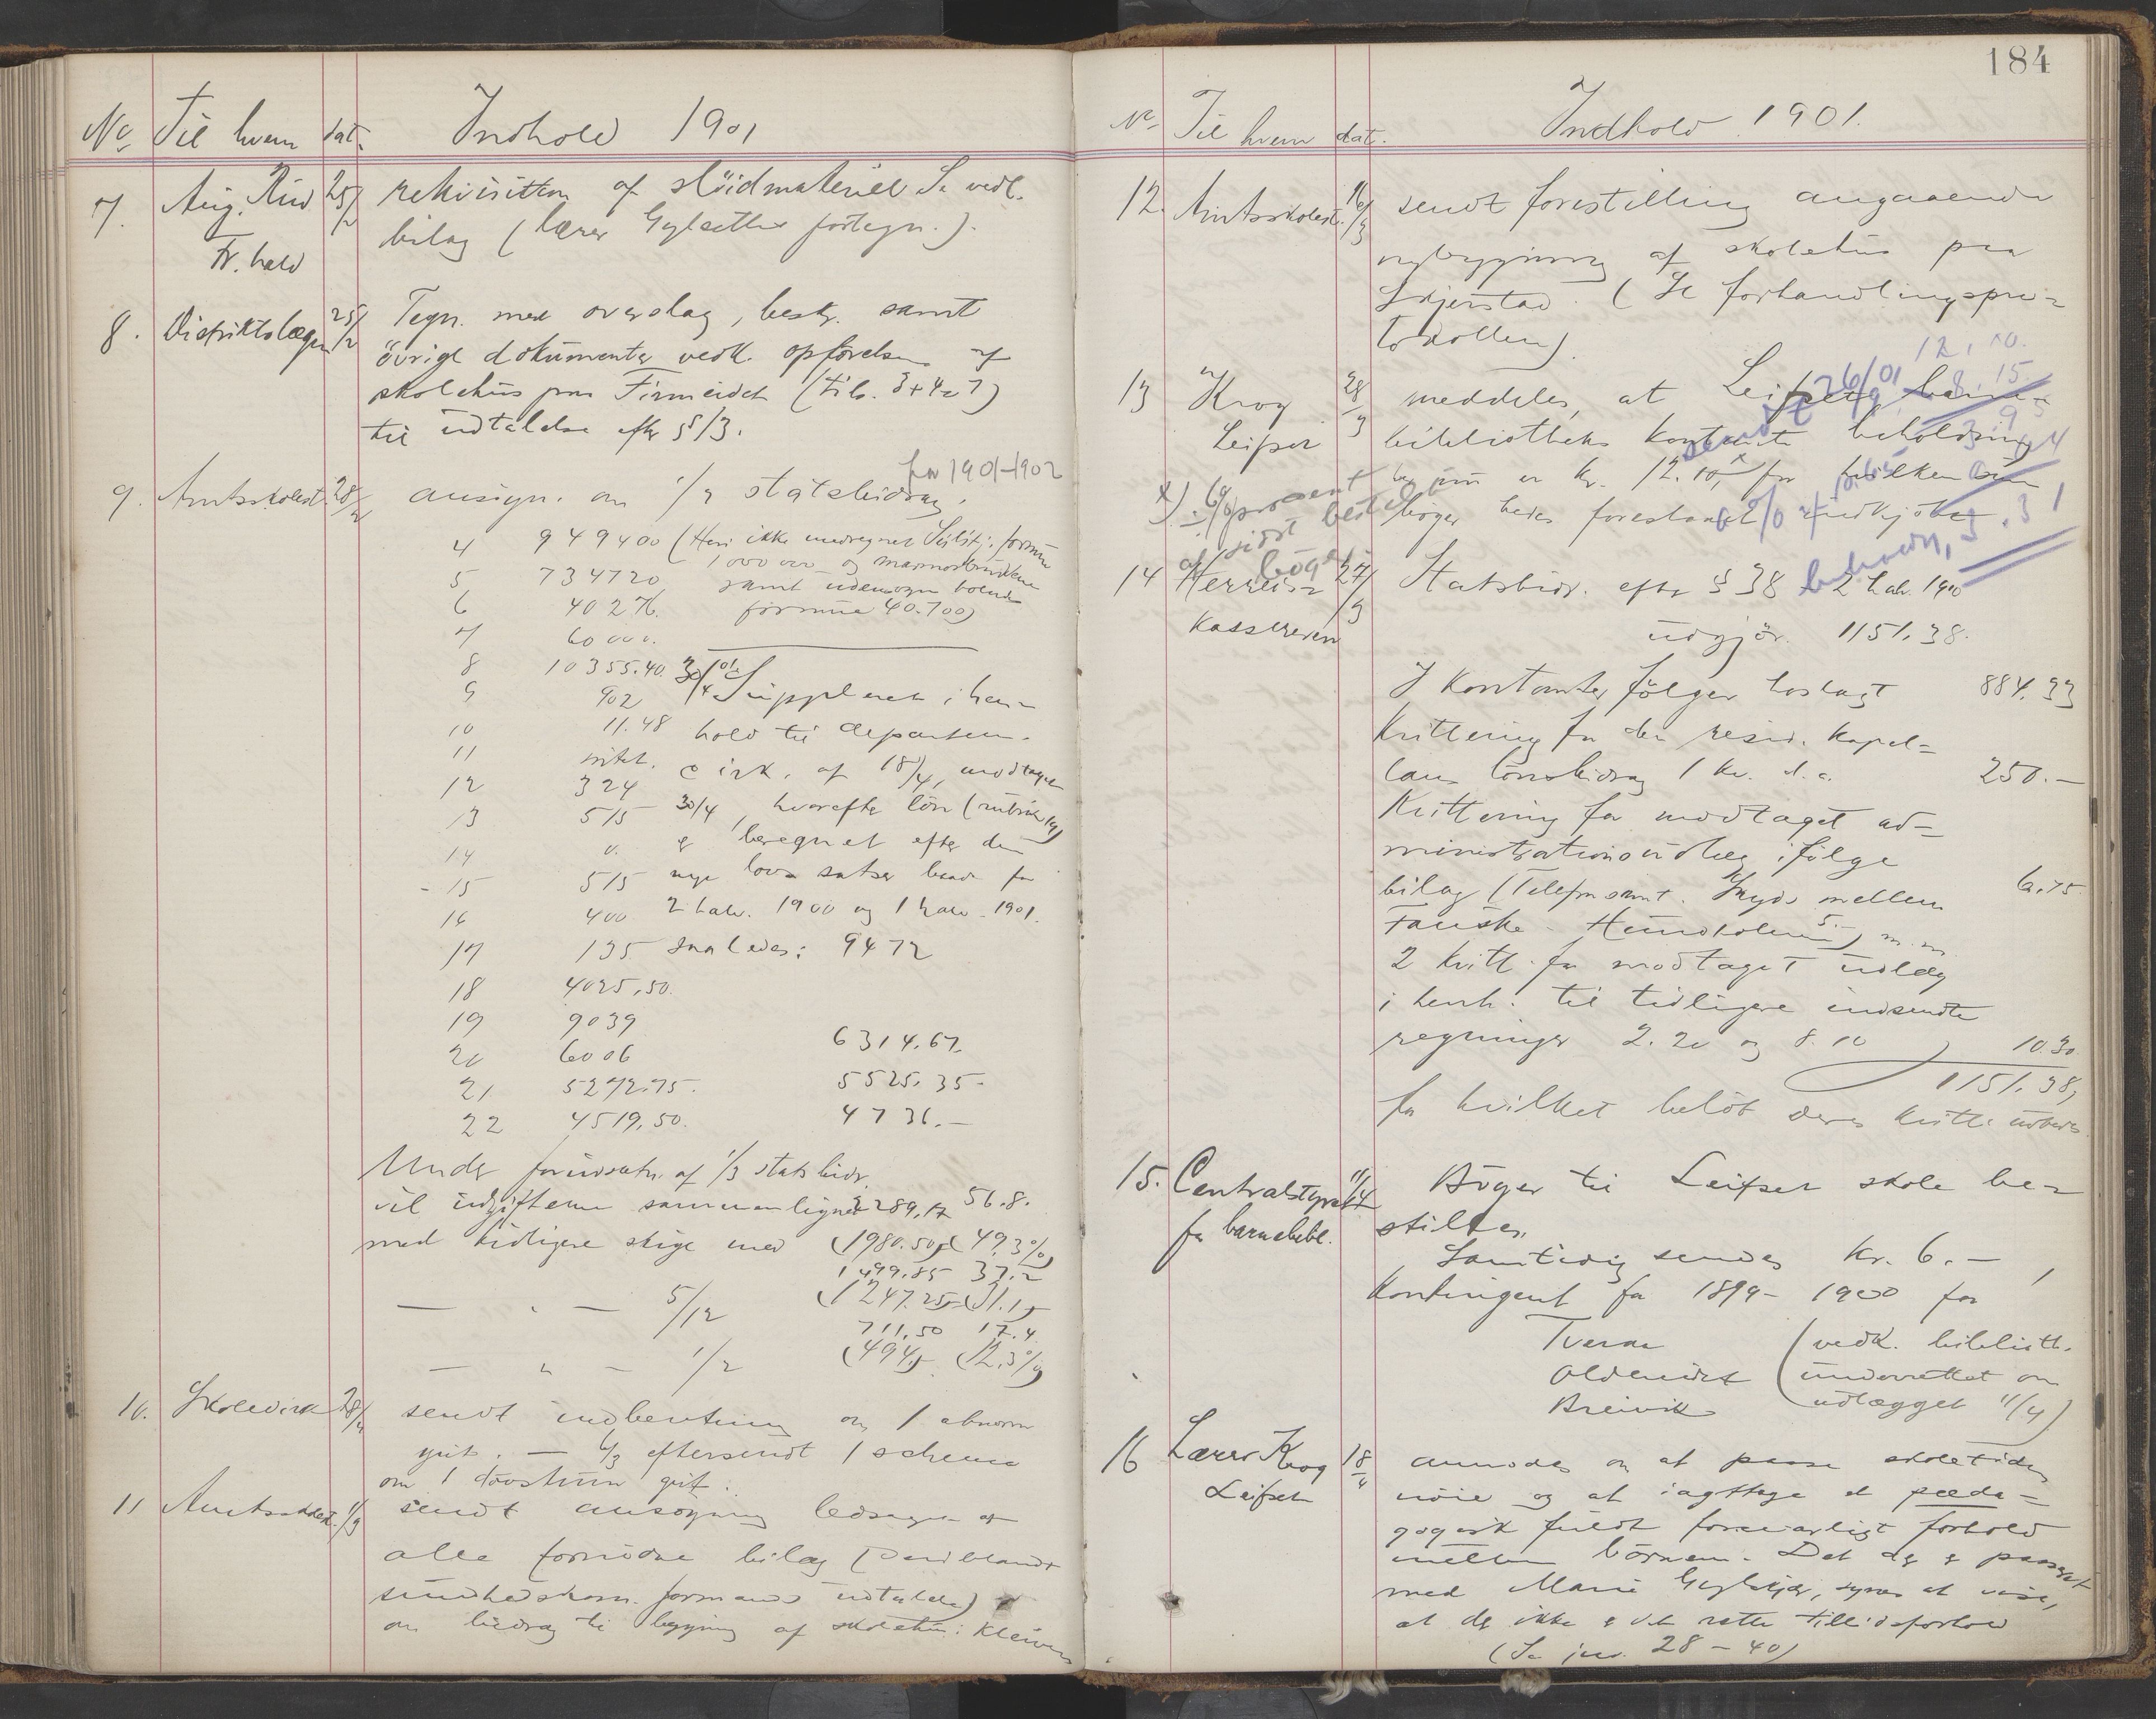 No Til hvem dat. Indhold 1901
7. Aug. Riis 25/2 rekvisition af slöidmateriel Se vedl.
Fr.hald bilag (lærer Gylseths fortegn.).
8. Distriktslægen 25/2 Tegn. med overslag, beskr. samt
övrige dokumenter vedk. opförelsen af
skolehus paa Finneidet (tils. 3+4=7)
til udtalelse efter §13.
for 1901-1902
9. Amtsskolest. 28/2 ansögn. om 1/2 statsbidrag.
4 949400 (Heri ikke medregnet formue
5 734720 1000000 og marmorbrudene
6 40276. samt udensogns boende
formue 40.700)
7 60000.
8 10355.40. 30/4 01.
9 902 Suppleret i hen-
10 11.48 hold til departem.
11 intet. cirk. af 18/4, modtaget
12 324
13 515 30/4, hvorefter løn (rubrik 19)
14 0. er beregnet efter den
15 515 nye lovs satser baade for
16 400 2 halv. 1900 og 1 halv. 1901.
17 135 saaledes: 9472
18 4025,50.
19 9039
20 6006 6314.67.
21 5272.75. 5525.35.
22 4519,50. 4736.-
Under forudsætn. af 1/3 statsbidr.
vil udgifterne sammenlignet 2289.17 56.8.
med tidligere stige med (1980.50) (49.3%)
1499.85 37.2
— " — 5/12 (1247.25) (31.1)
711.50 17.4
— " — 1/2 (494) (12.3%)
10. Skoledir. 28/2 sendt indberetning om 1 abnorm
gut. — 6/3 eftersendt 1 schema
om 1 døvstum gut.
11 Amtsskolest. 1/3 sendt ansögning ledsaget af
alle fornödne bilag (deriblandt
sundhedskom. formands udtalelse)
om bidrag til bygning af skolehus i Kleiven
184
No Til hvem dat. Indhold 1901.
12. Amtsskolest. 16/3 sendt forestilling angaaende
nybygning af skolehus paa
Skjerstad. (Se forhandlingspro-
tokollen).
12,10.
8,15
13 Krog 28/3 meddeles, at Leifset barne-
Leifset bibliotheks kontante beholdning
sendt 26/9 01
3,95
her nu er kr. 12.10,x for hvilken sum
x) 6% procent böger bedes forestaaet indkjøbt.
af sidst bestilte böger
beholdn. 3.31
14 Herreds- 27/3 Statsbidr. efter § 38 2 halv. 1900
kassereren udgjör. 1151.38.
I kontanter fölger vedlagt 884.33
Kvittering for den resid. kapel-
lans lönsbidrag 1 kv. d.a. 250.-
Kvittering for modtaget ad-
ministrationsudlæg ifölge
bilag (Telefon samt. Skyds mellem 6.75
Fauske - Hundholmen 5.-) m.m
2 kvitt. for modtaget udlæg
i henh. til tidligere indsendte
regninger 2.20 og 8.10 10.30
1151.38,
for hvilket belöb deres kvitt. udbedes.
15. Centralstyret 11/4 Böger til Leifset skole be-
for barnebibl. stilles.
Samtidig sendes kr. 6.-,
Kontingent for 1899-1900 for
Tveraa (vedk. biblioth.
Oldereidet underrettet om
Breivik udlægget 11/4)
16 Lærer Krog 18/4 anmodes om at passe skoletiden
Leifset nöie og at iagttage et pæda-
gogisk fuldt forsvarligt forhold
mellem börnene. Det der er passeret
med Marie, synes at vise,
at der ikke er det rette tillidsforhold
(Se jour. 28-40)